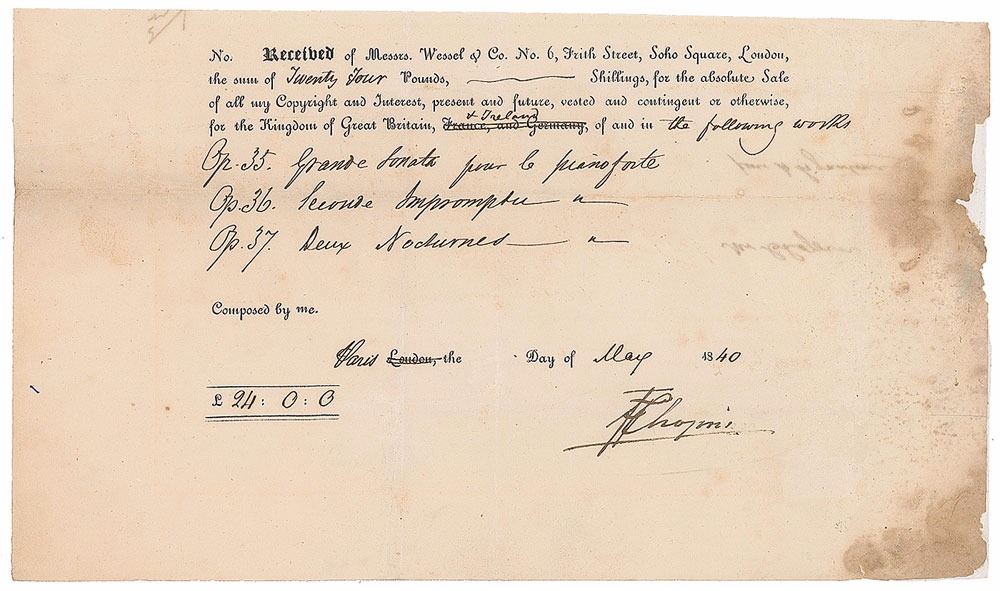 No. Received of Messrs. Wessel & Co. No. 6, Frith Street, Soho Square, London,
the sum of Twenty Four Pounds, Shillings, for the absolute Sale
of all my Copyright and Interest, present and future, vested and contingent or otherwise,
& Ireland
for the Kingdom of Great Britain, France, and Germany, of and in the following works
Op. 35. Grande Sonata pour le pianoforte
Op. 36. Seconde Impromptu — " —
Op. 37. Deux Nocturnes — " —
Composed by me.
Paris London, the Day of May 1840
£ 24: 0: 0
FChopin